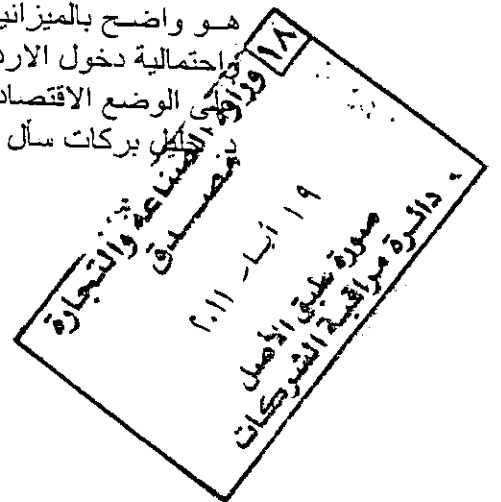 هو واضح بالميزاني
احتمالية دخول الارد
على الوضع الاقتصاد
د. خليل بركات سأل
١٨
وزارة الصناعة والتجارة
مصدق
١٩ أيار ٢٠١١
صورة طبق الأصل
دائرة مراقبة الشركات